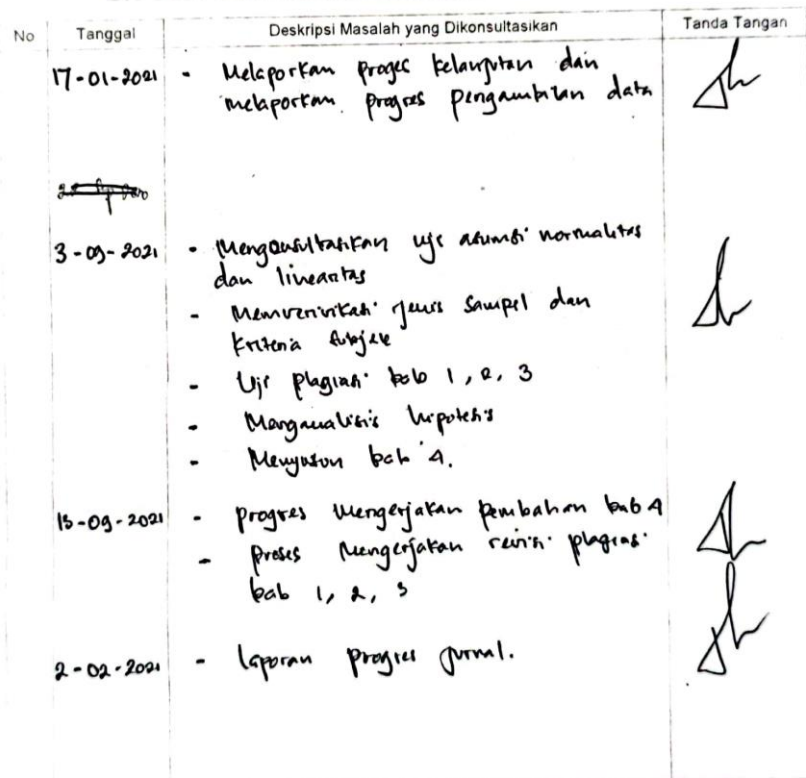 No Tanggal Deskripsi Masalah yang Dikonsultasikan Tanda Tangan
17-01-2021 - Melaporkan proges kelanjutan dan
melaporkan progres pengambilan data
3-09-2021 - Mengonsultasikan uji asumsi normalitas
dan linearitas
- Memverivikasi jenis sampel dan
kriteria subjek
- Uji plagiasi bab 1, 2, 3
- Manganalisis hipotesis
- Menyusun bab 4.
15-09-2021 - progres mengerjakan pembahan bab 4
- proses mengerjakan revisi plagiasi
bab 1, 2, 3
2-02-2021 - laporan progres jurnal.